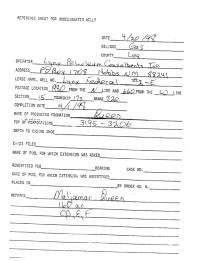 REFERENCE SHEET FOR UNDESIGNATED WELLS
DATE 4/20/98
OIL/GAS Gas
COUNTY Lea
OPERATOR Lynx Petroleum Consultants Inc
ADDRESS PO Box 1708 Hobbs NM 88241
LEASE NAME, WELL NO. Lynx Federal
FOOTAGE LOCATION 1980 FROM THE N LINE AND 660 FROM THE W LINE
SECTION 15 TOWNSHIP 17S RANGE 32E
COMPLETION DATE 4/1/98
NAME OF PRODUCING FORMATION Queen
TOP OF PERFORATIONS 3195 - 3206
DEPTH TO CASING SHOE
C-123 FILED
NAME OF POOL FOR WHICH EXTENSION WAS ASKED
ADVERTISED FOR HEARING CASE NO.
NAME OF POOL FOR WHICH EXTENSION WAS ADVERTISED
PLACED IN BY ORDER NO. R-
REMARKS Maljamar Queen
160 ac
CD, E, F